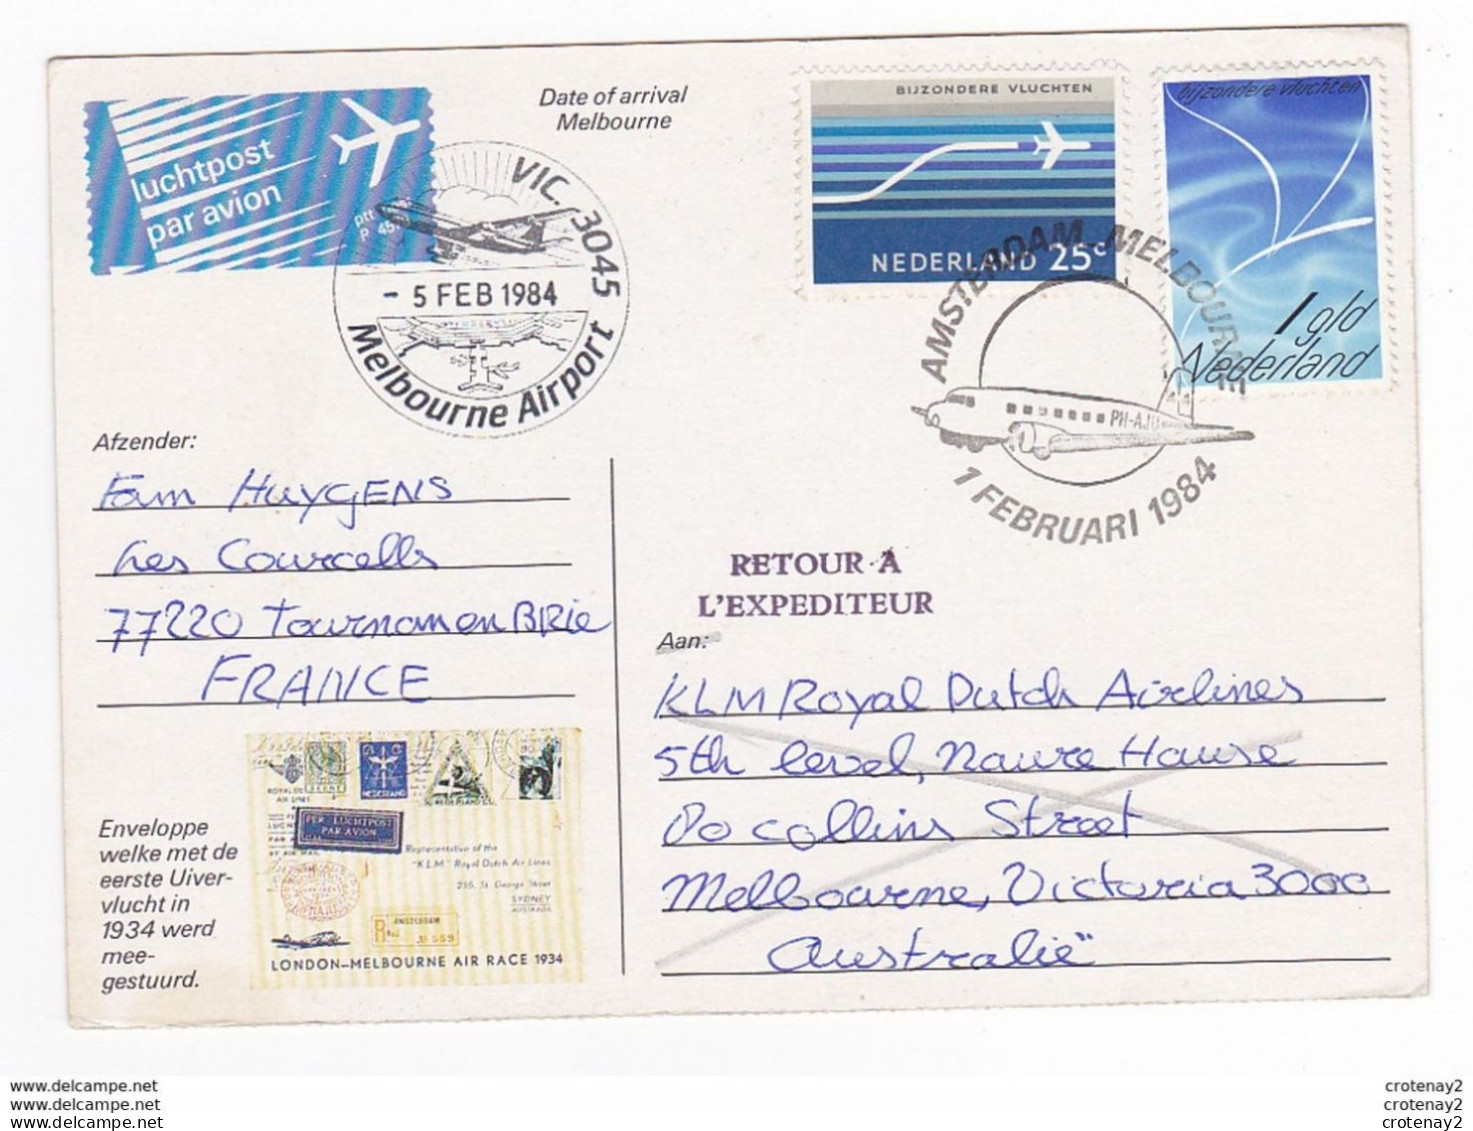 luchtpost
par avion
ptt
P
Date of arrival
Melbourne
VIC. 3045
- 5 FEB 1984
Melbourne Airport
BIJZONDERE VLUCHTEN
NEDERLAND 25c
bijzondere vluchten
1 gld
Nederland
AMSTERDAM-MELBOURNE
PH-AJU
44
1 FEBRUARI 1984
Afzender:
Fam HUYGENS
Les Courcells
77220 Tournan en BRie
FRANCE
RETOUR A
L'EXPEDITEUR
Aan:
KLM Royal Dutch Airlines
5th level, Naure House
80 Collins Street
Melbourne, Victoria 3000
Australië"
Enveloppe
welke met de
eerste Uiver-
vlucht in
1934 werd
mee-
gestuurd.
NEDERLAND
ROYAL DUTCH
AIR LINES
PER LUCHTPOST
PAR AVION
Representative of the
"K.L.M." Royal Dutch Air Lines
255, St. George Street
SYDNEY
AUSTRALIA
R
AMSTERDAM
LONDON-MELBOURNE AIR RACE 1934
www.delcampe.net
www.delcampe.net
www.delcampe.net
crotenay2
crotenay2
crotenay2